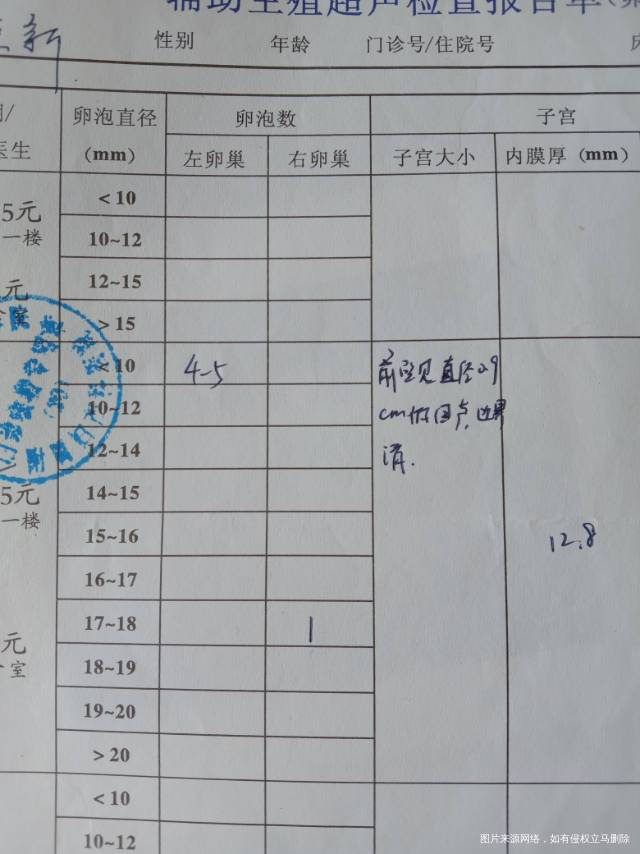 辅助生殖超声检查报告单
新
性别 年龄 门诊号/住院号
卵泡直径 卵泡数 子宫
医生 (mm) 左卵巢 右卵巢 子宫大小 内膜厚 (mm)
<10
5元
一楼 10~12
元 12~15
室 >15
<10 4-5 前壁见直径2.9
10~12 cm
12~14 清.
5元 14~15
一楼 15~16 12.8
16~17
元 17~18 1
室 18~19
19~20
>20
<10
10~12
图片来源网络，如有侵权立马删除